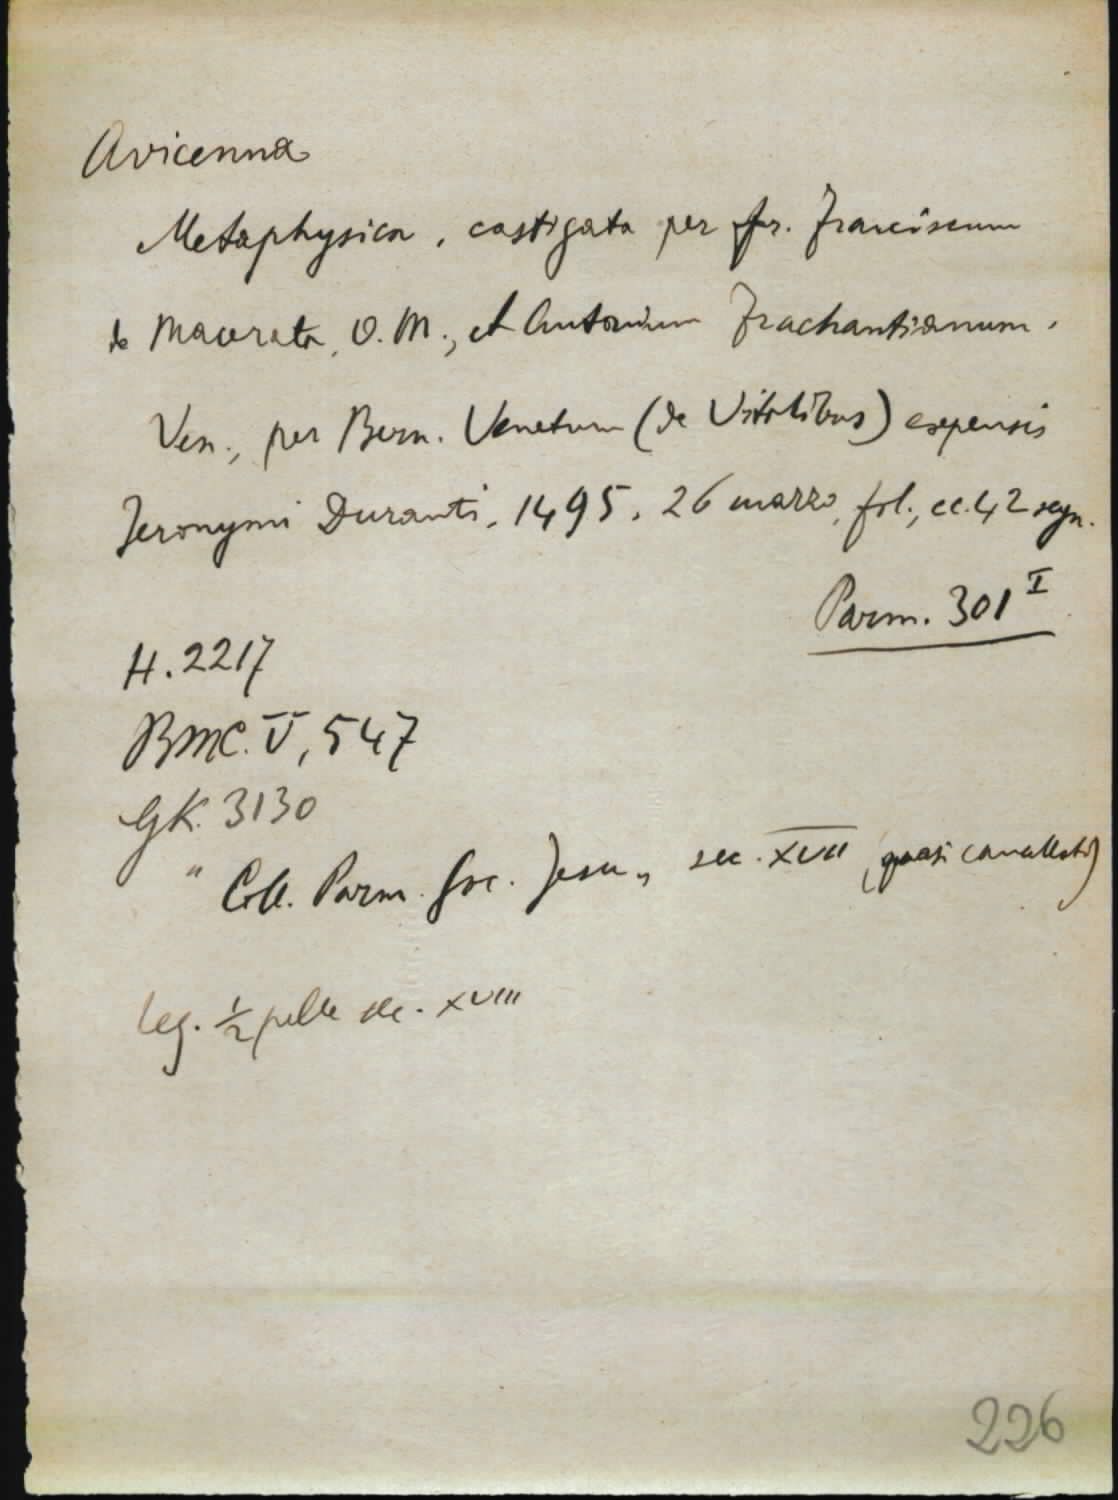 Avicenna
Metaphysica, castigata per fr. Franciscum
de Macerata, O. M., et Antonium Frachantianum.
Ven., per Bern. Venetum (de Vitalibus) expensis
Jeronymi Duranti, 1495, 26 marzo, fol., cc. 42 segn.
Parm. 301 I
H. 2217
BMC. V, 547
GK. 3130
" Coll. Parm. Soc. Jesu„ sec. XVII (quasi cancellato)
Leg. ½ pelle sec. XVIII
226